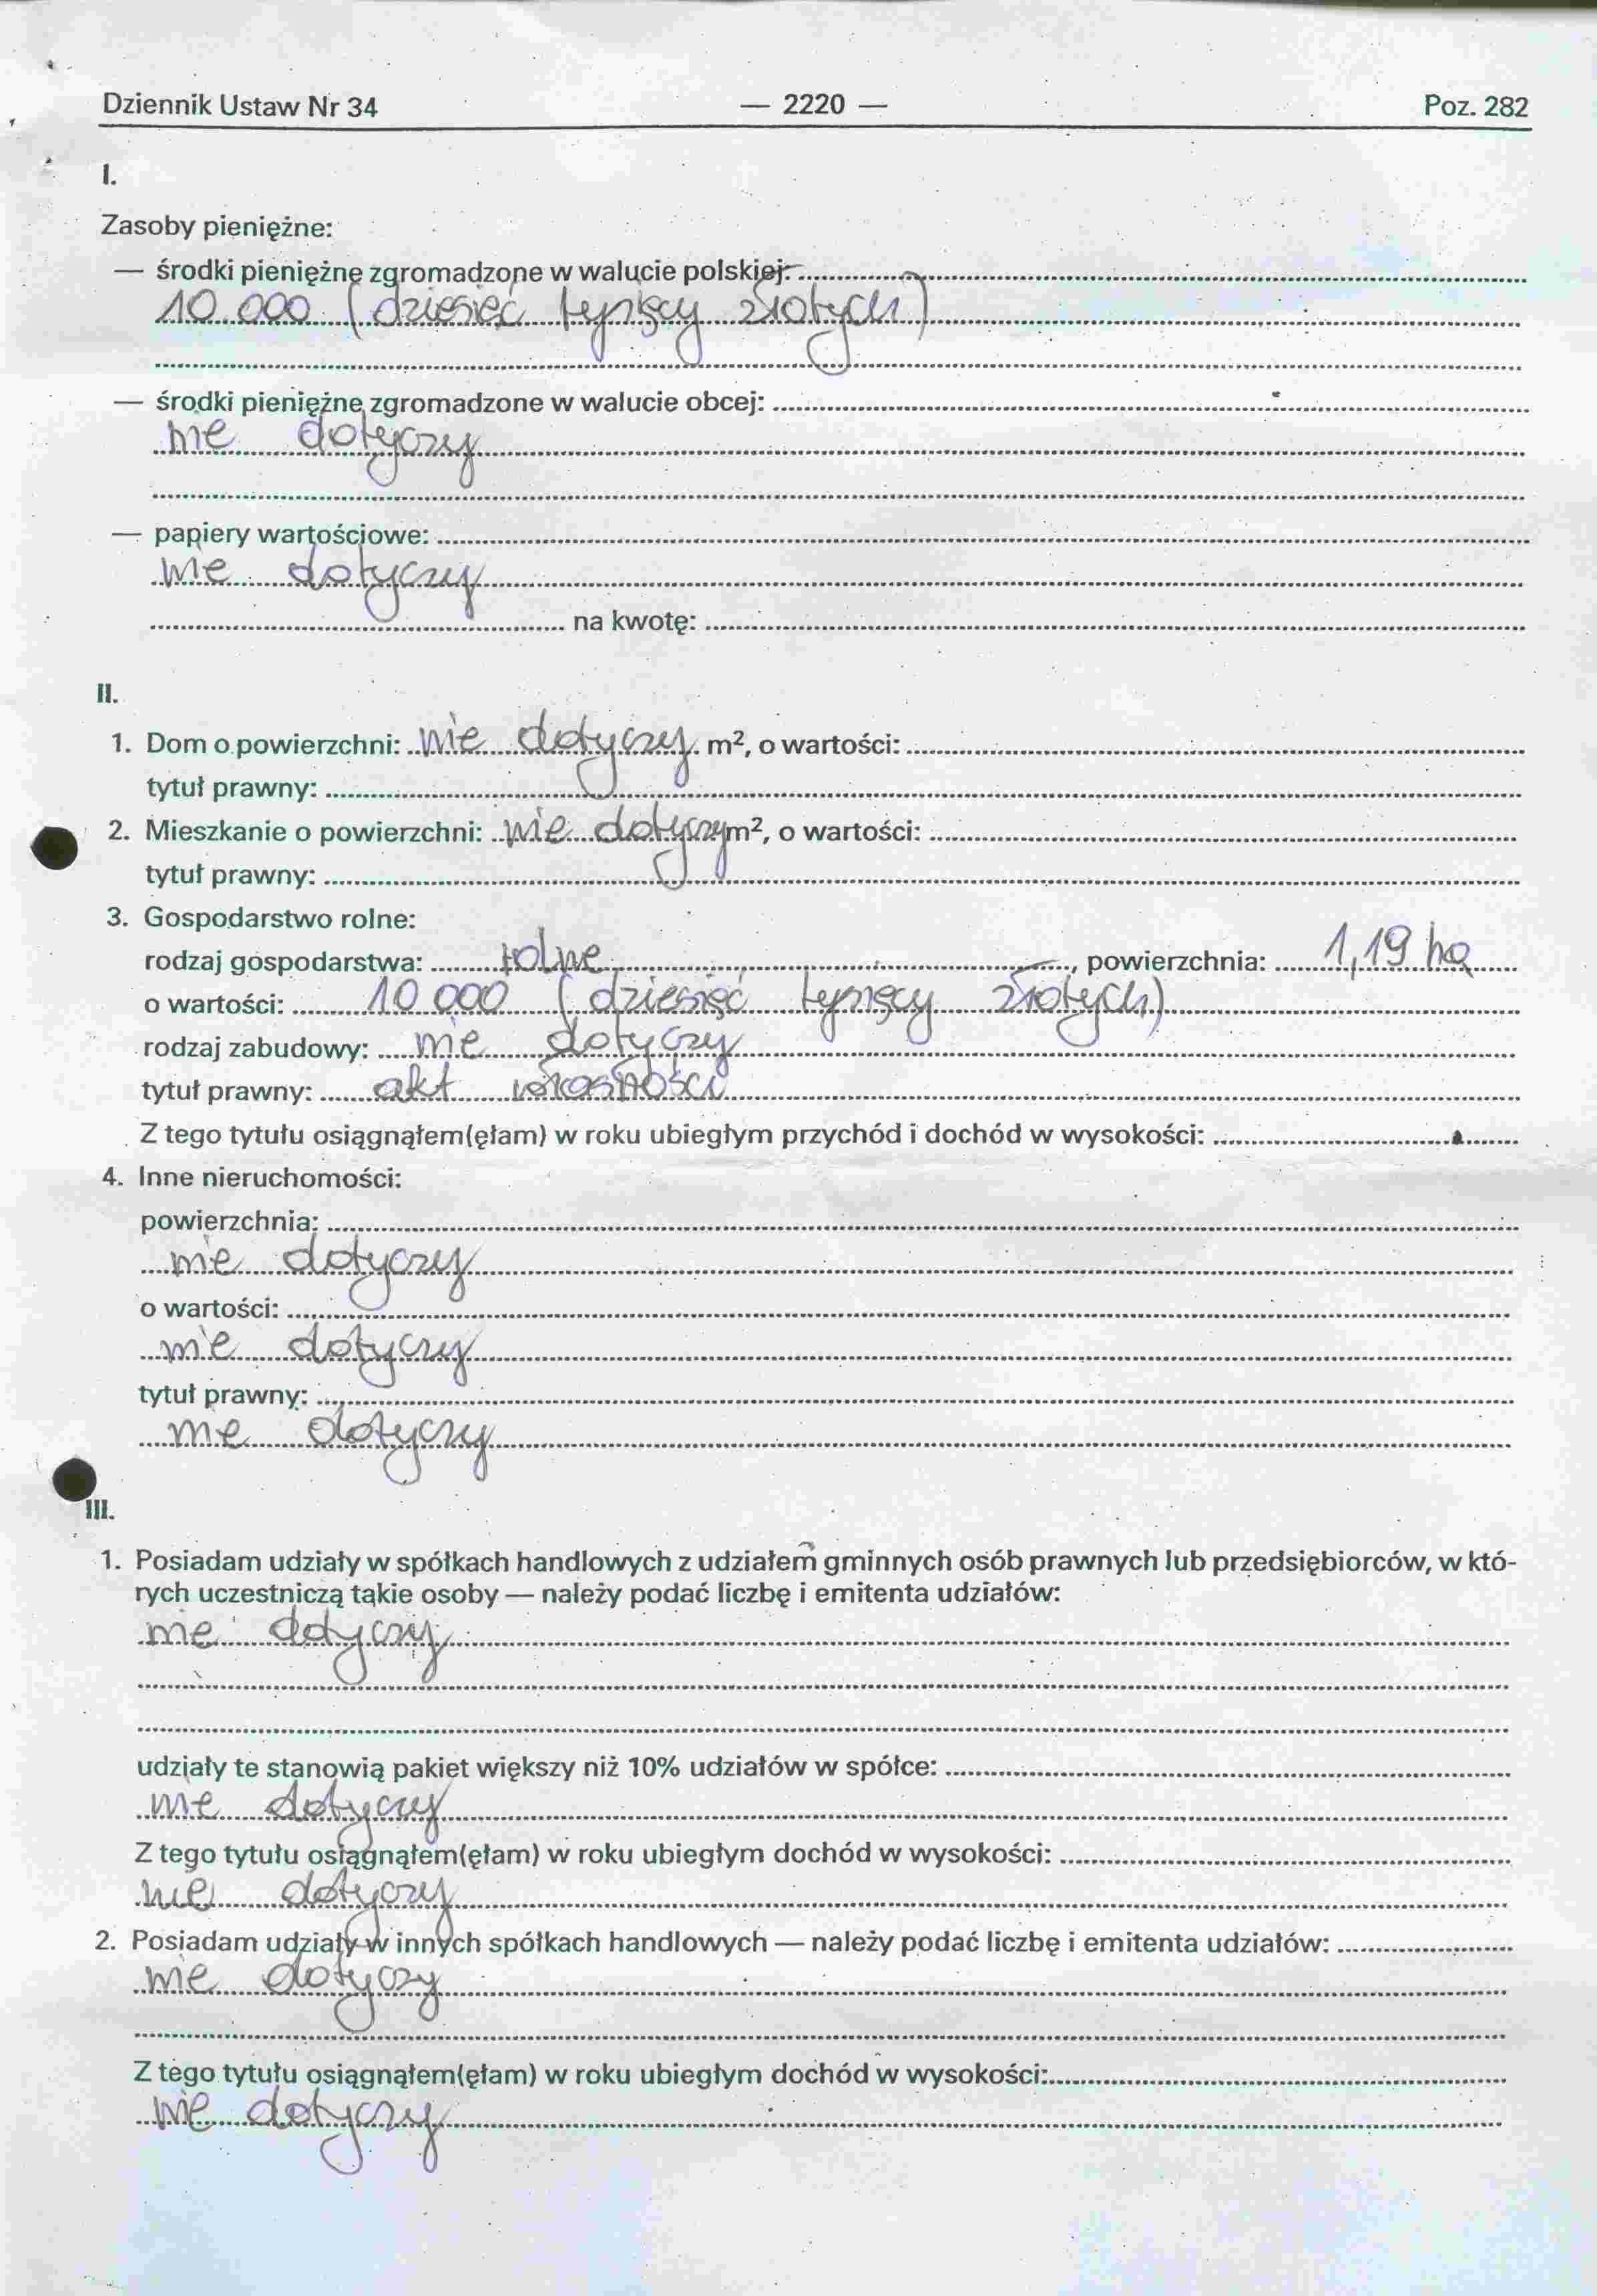 Dziennik Ustaw Nr 34 — 2220 — Poz. 282
I.
Zasoby pieniężne:
— środki pieniężne zgromadzone w walucie polskiej:
10.000 (dziesięć tysięcy złotych)
— środki pieniężne zgromadzone w walucie obcej:
nie dotyczy
— papiery wartościowe:
nie dotyczy
na kwotę:
II.
1. Dom o powierzchni: nie dotyczy m², o wartości:
tytuł prawny:
2. Mieszkanie o powierzchni: nie dotyczy m², o wartości:
tytuł prawny:
3. Gospodarstwo rolne:
rodzaj gospodarstwa: rolne, powierzchnia: 1,19 ha
o wartości: 10 000 (dziesięć tysięcy złotych)
rodzaj zabudowy: nie dotyczy
tytuł prawny: akt własności
Z tego tytułu osiągnąłem(ęłam) w roku ubiegłym przychód i dochód w wysokości:
4. Inne nieruchomości:
powierzchnia:
nie dotyczy
o wartości:
nie dotyczy
tytuł prawny:
nie dotyczy
III.
1. Posiadam udziały w spółkach handlowych z udziałem gminnych osób prawnych lub przedsiębiorców, w któ-
rych uczestniczą takie osoby — należy podać liczbę i emitenta udziałów:
nie dotyczy
udziały te stanowią pakiet większy niż 10% udziałów w spółce:
nie dotyczy
Z tego tytułu osiągnąłem(ęłam) w roku ubiegłym dochód w wysokości:
nie dotyczy
2. Posiadam udziały w innych spółkach handlowych — należy podać liczbę i emitenta udziałów:
nie dotyczy
Z tego tytułu osiągnąłem(ęłam) w roku ubiegłym dochód w wysokości:
nie dotyczy